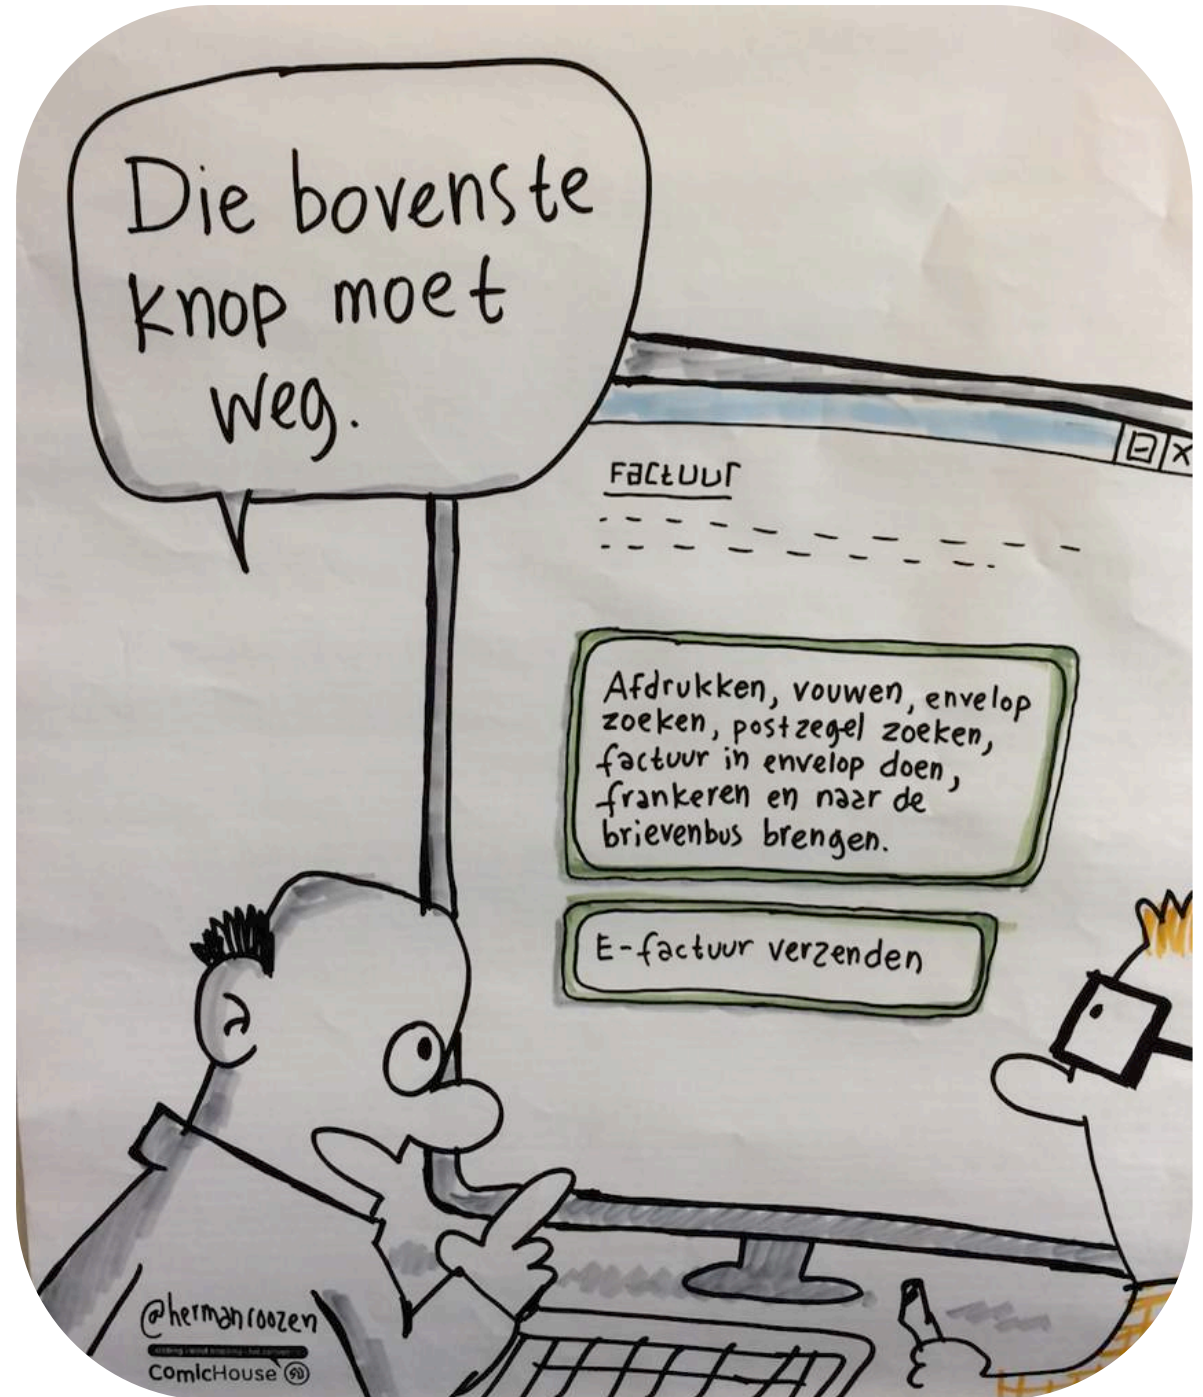 Die bovenste
knop moet
weg.
Factuur
Afdrukken, vouwen, envelop
zoeken, postzegel zoeken,
factuur in envelop doen,
frankeren en naar de
brievenbus brengen.
E-factuur verzenden
@hermanroozen
ComicHouse